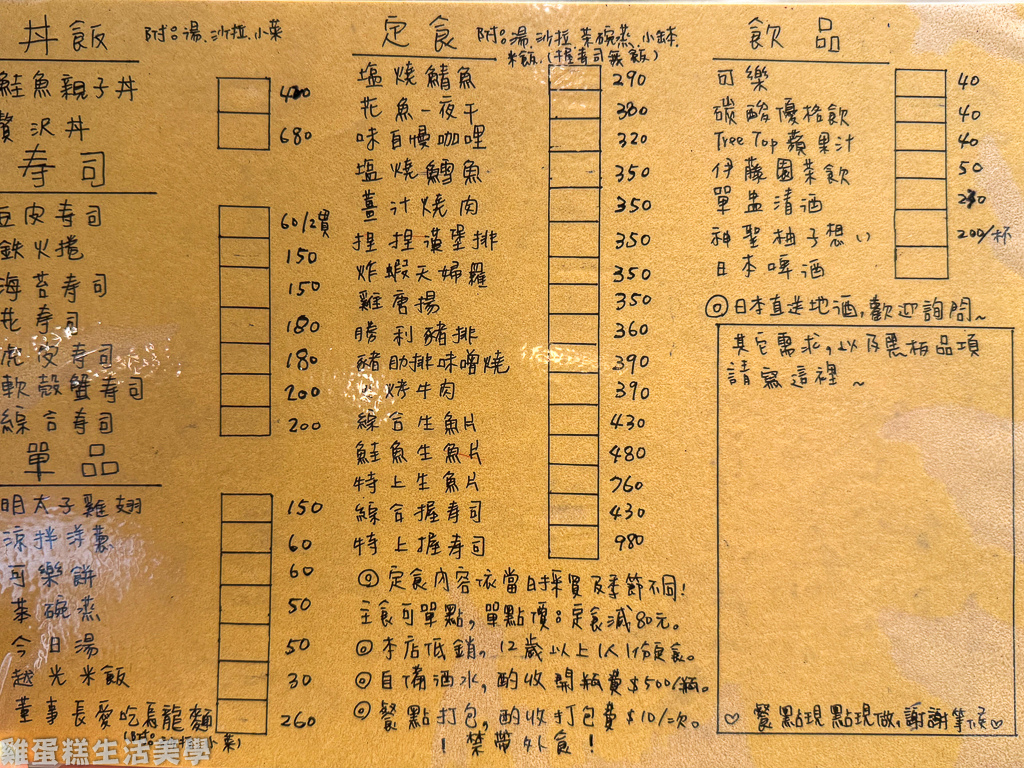 丼飯 附:湯、沙拉、小菜
鮭魚親子丼
贅沢丼 680
寿司
豆皮寿司 60/2貫
鉄火捲 150
海苔寿司 150
花寿司 180
虎皮寿司 180
軟殼蟹寿司 200
綜合寿司 200
單品
明太子雞翅 150
涼拌洋蔥 60
可樂餅 60
茶碗蒸 50
今日湯 50
越光米飯 30
董事長愛吃烏龍麵 260
(附:沙拉、小菜)
定食 附:湯、沙拉、茶碗蒸、小缽、
米飯,(握寿司無飯)
塩燒鯖魚 290
花魚一夜干 380
味自慢咖哩 320
塩燒鱈魚 350
薑汁燒肉 350
捏捏漢堡排 350
炸蝦天婦羅 350
雞唐揚 350
勝利豬排 360
豬肋排味噌燒 390
烤牛肉 390
綜合生魚片 430
鮭魚生魚片 480
特上生魚片 760
綜合握寿司 430
特上握寿司 980
◎ 定食內容依當日採買及季節不同!
主食可單點,單點價:定食減80元。
◎ 本店低銷,12歲以上1人1份定食。
◎ 自備酒水,酌收開瓶費$500/瓶。
◎ 餐點打包,酌收打包費$10/次。
! 禁帶外食 !
飲品
可樂 40
碳酸優格飲 40
Tree Top 蘋果汁 40
伊藤園茶飲 50
單盅清酒
神聖柚子想い 200/杯
日本啤酒
◎日本直送地酒,歡迎詢問~
其它需求,以及黑板品項
請寫這裡~
♡ 餐點現點現做,謝謝等候♡
雞蛋糕生活美學